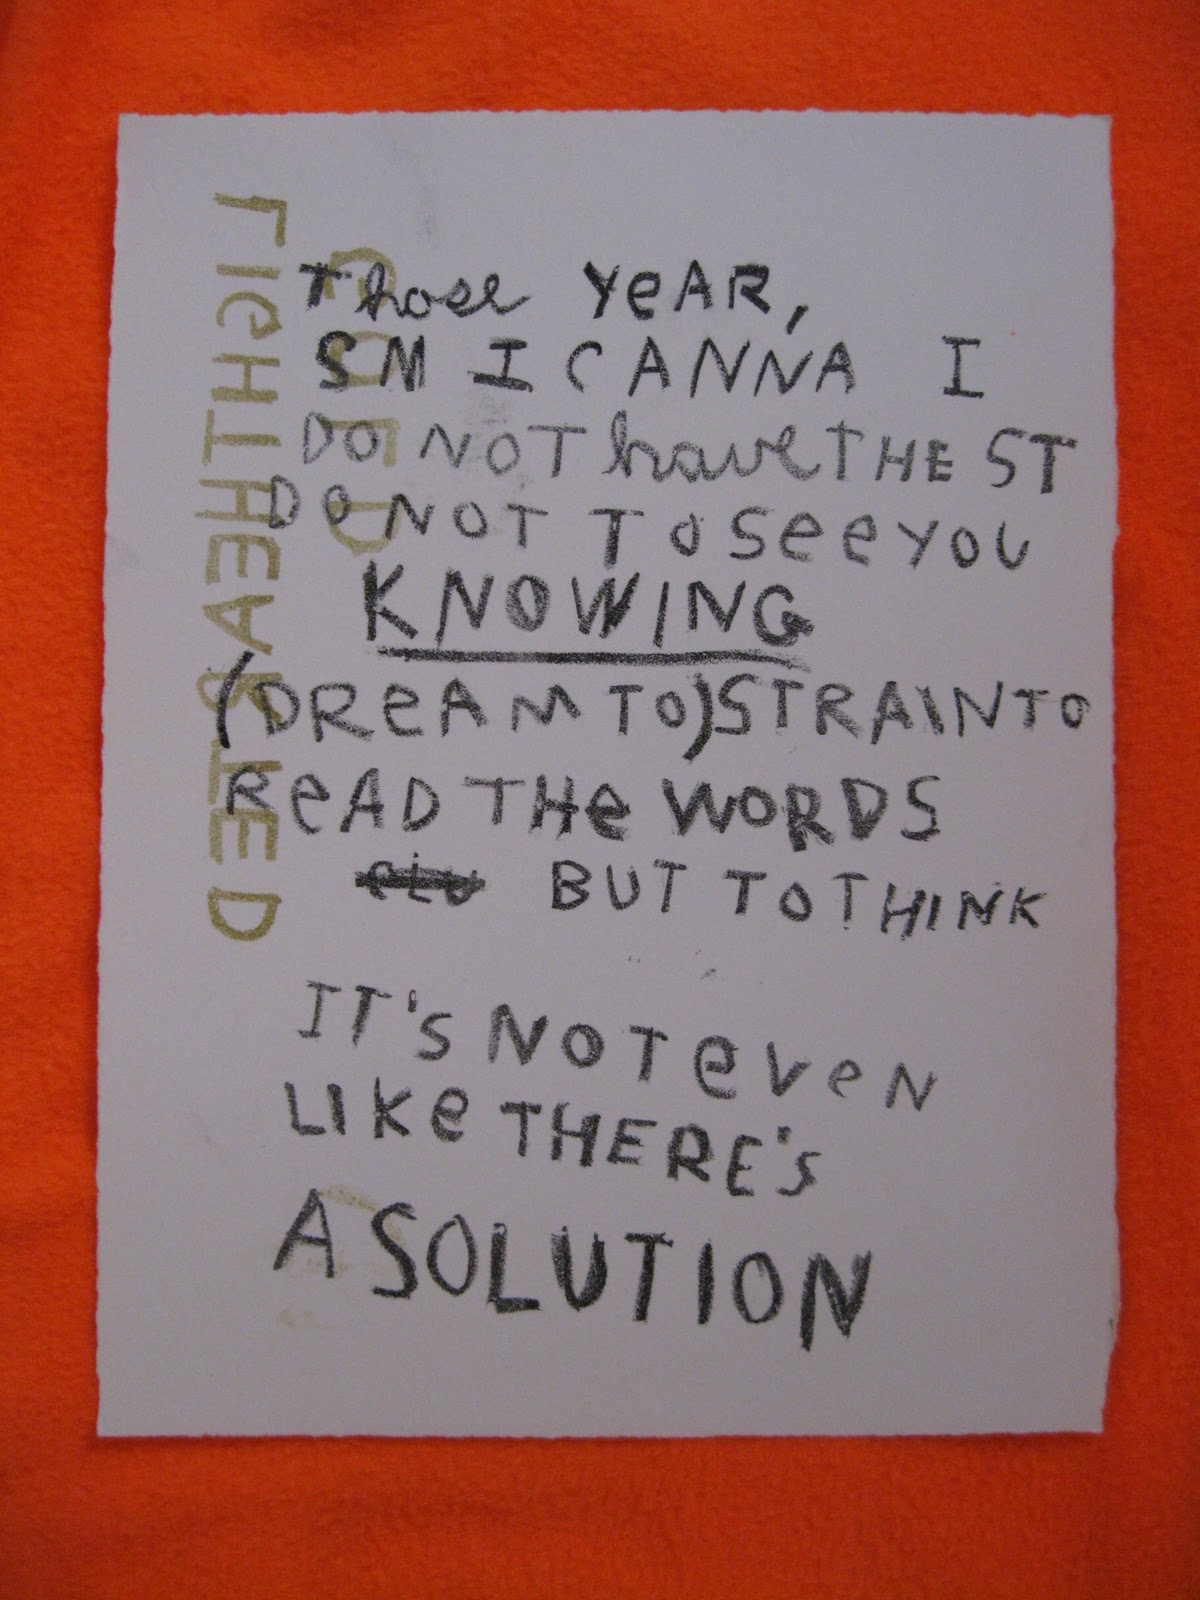 Those YeAR,
SM I CANNA I
DO NOT have THE ST
Do NOT TO see YOU
KNOWING
(DReAM TO) STRAIN TO
ReAD THe WORDS
BUT TO THINK
IT'S NOT eveN
LIKe THERE'S
A SOLUTION
LIGHTHEARTED